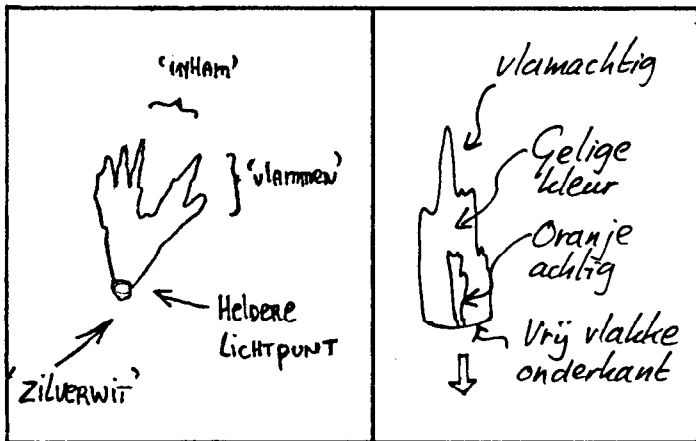 'INHAM'
'VLAMMEN'
HELDERE
LICHTPUNT
'ZILVERWIT'
vlamachtig
Gelige
kleur
Oranje
achtig
Vrij vlakke
onderkant